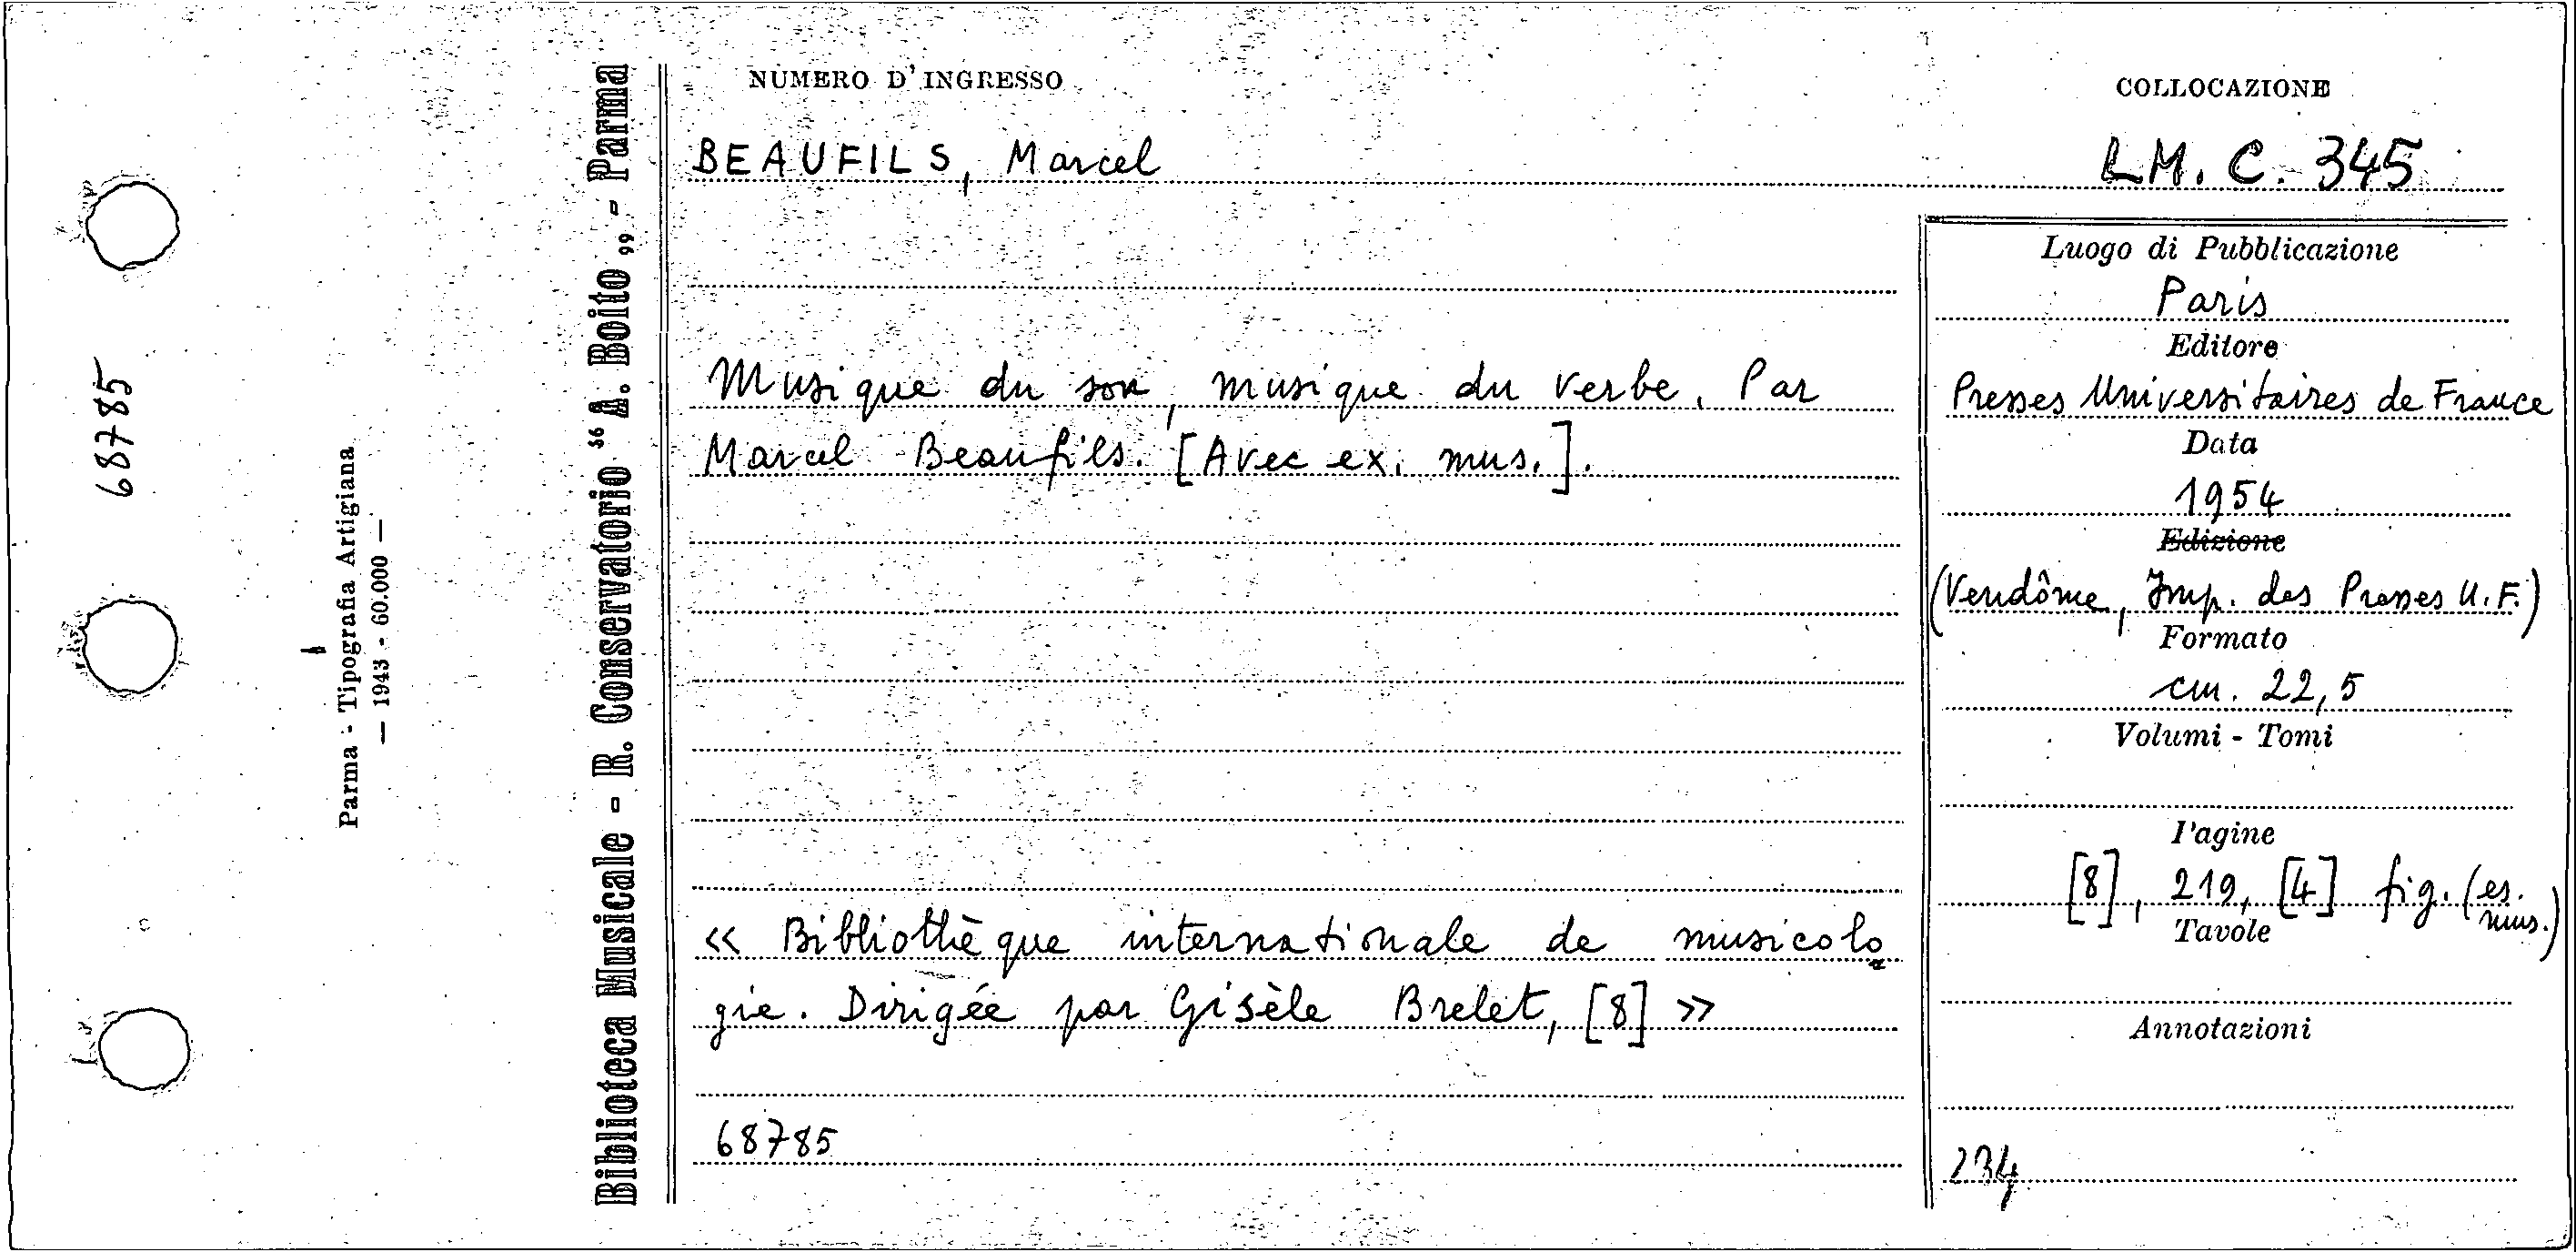 68785
Parma - Tipografia Artigiana
— 1943 - 60.000 —
Biblioteca Musicale - R. Conservatorio “A. Boito„ - Parma
NUMERO D'INGRESSO
BEAUFILS, Marcel
Musique du son, musique du verbe. Par
Marcel Beaufils. [Avec ex. mus.].
« Bibliothèque internationale de musicolo
gie. Dirigée par Gisèle Brelet, [8] »
68785
COLLOCAZIONE
LM. C. 345
Luogo di Pubblicazione
Paris
Editore
Presses Universitaires de France
Data
1954
Edizione
(Vendôme, Imp. des Presses U.F.)
Formato
cm. 22,5
Volumi - Tomi
Pagine
[8], 219, [4] fig. (es.
mus.)
Tavole
Annotazioni
234